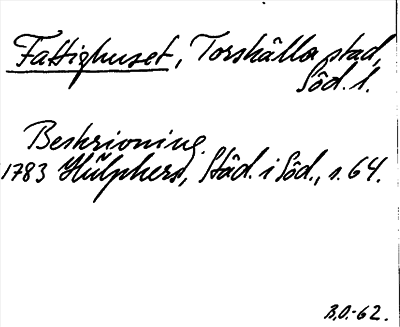 Fattighuset, Torshälla stad,
Söd. l.
Beskrivning.
1783 Hülphers, Städ. i Söd., s. 64.
B.O.-62.